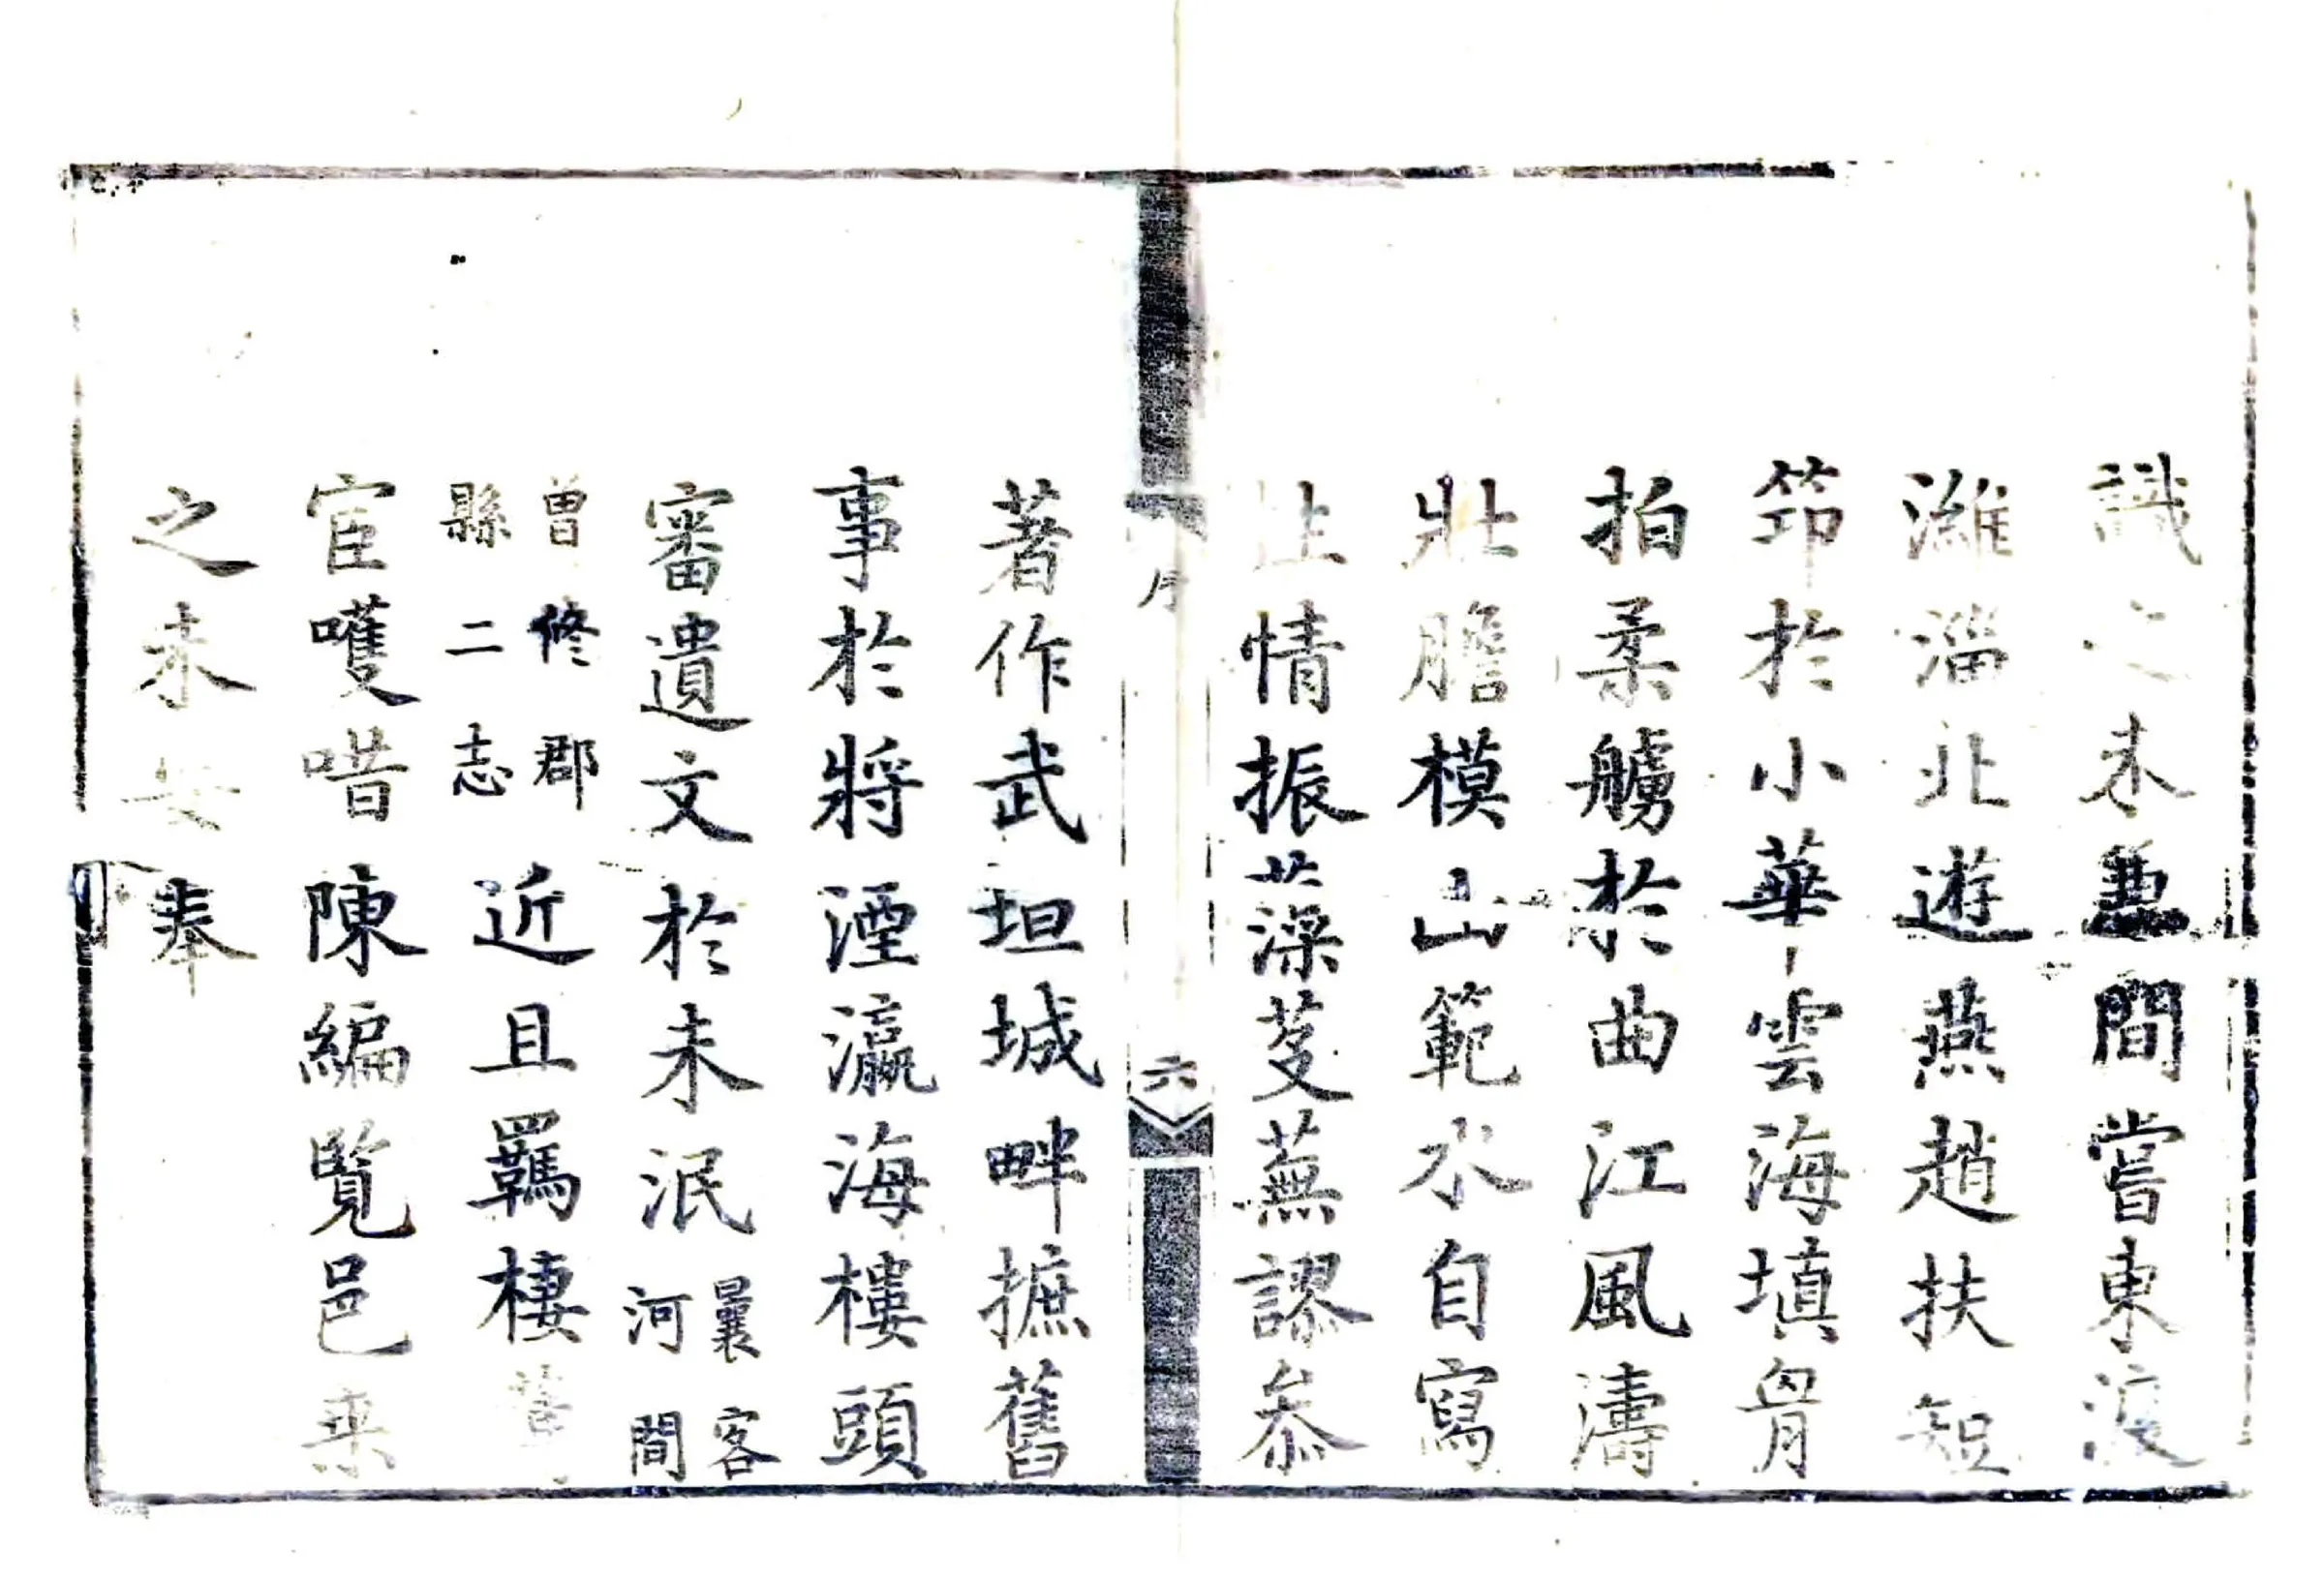 識之未兼間嘗東渡
濰淄北遊燕趙扶短
笻於小華雲海填胷
拍柔艣於曲江風濤
壯膽模山範水自寫
性情振藻芟蕪謬叅
序
六
著作武垣城畔摭舊
事於將湮瀛海樓頭
審遺文於未泯曩客河間
曾修郡縣二志近且羈棲
宦嚄唶陳編覧邑乘
之未安奉